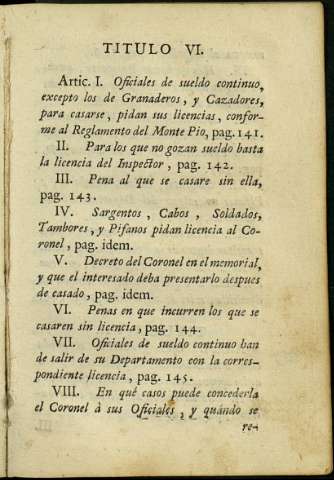 TITULO VI.
Artic. I. Oficiales de sueldo continuo,
excepto los de Granaderos, y Cazadores,
para casarse, pidan sus licencias, confor-
me al Reglamento del Monte Pio, pag. 141.
II. Para los que no gozan sueldo basta
la licencia del Inspector, pag. 142.
III. Pena al que se casare sin ella,
pag. 143.
IV. Sargentos, Cabos, Soldados,
Tambores, y Pifanos pidan licencia al Co-
ronel, pag. idem.
V. Decreto del Coronel en el memorial,
y que el interesado deba presentarlo despues
de casado, pag. idem.
VI. Penas en que incurren los que se
casaren sin licencia, pag. 144.
VII. Oficiales de sueldo continuo han
de salir de su Departamento con la corres-
pondiente licencia, pag. 145.
VIII. En qué casos puede concederla
el Coronel à sus Oficiales, y quándo se
re-